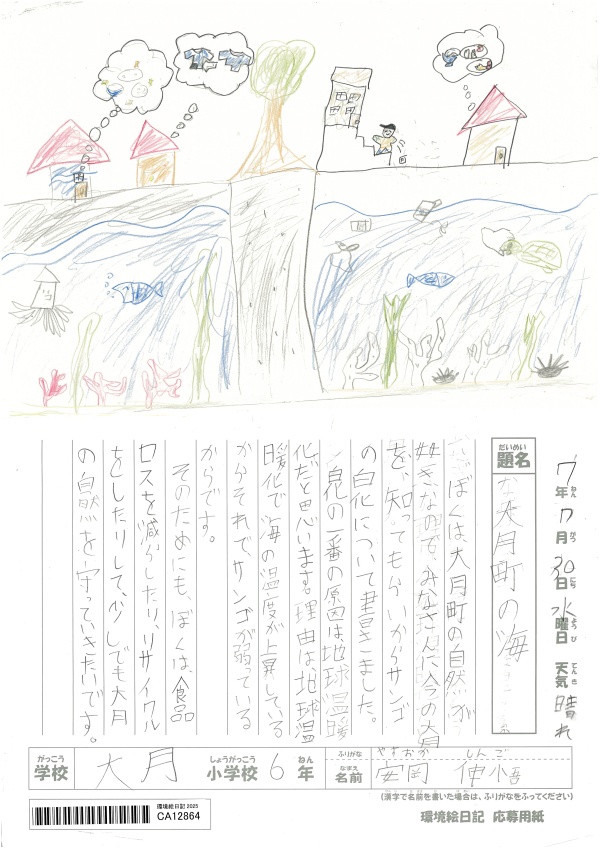 7年7月30日水曜日 天気 晴れ
ねん がつ にち ようび てんき
だいめい
題名
大月町の海
ぼくは、大月町の自然が
好きなので、みなさんに今の大月
を、知ってもらいたいからサンゴ
の白化について書きました。
白化の一番の原因は地球温暖
化だと思います。理由は、地球温
暖化で海の温度が上昇している
からそれで、サンゴが弱っている
からです。
そのためにも、ぼくは、食品
ロスを減らしたり、リサイクル
をしたりして、少しでも大月
の自然を守っていきたいです。
がっこう しょうがっこう ねん ふりがな やすおか しんご
学校 大月 小学校 6年 なまえ 名前 安岡 伸吾
(漢字で名前を書いた場合は、ふりがなをふってください)
環境絵日記 応募用紙
環境絵日記 2025
CA12864